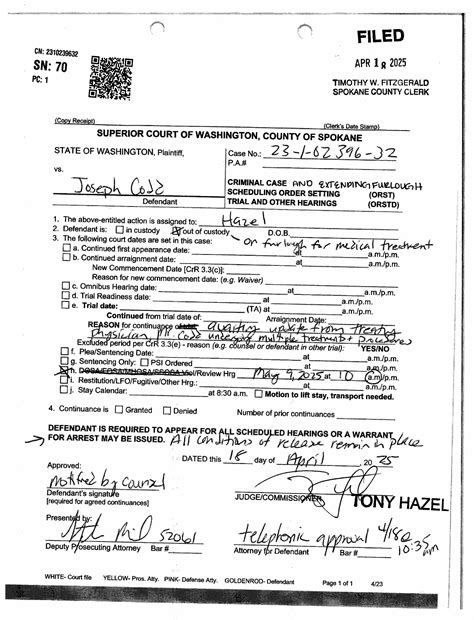 CN: 2310239632
SN: 70
PC: 1
FILED
APR 18 2025
TIMOTHY W. FITZGERALD
SPOKANE COUNTY CLERK
(Copy Receipt)
(Clerk's Date Stamp)
SUPERIOR COURT OF WASHINGTON, COUNTY OF SPOKANE
STATE OF WASHINGTON, Plaintiff,
vs.
Joseph Codd
Defendant
Case No.: 23-1-02396-32
P.A.#
CRIMINAL CASE AND EXTENDING FURLOUGH
SCHEDULING ORDER SETTING (ORST)
TRIAL AND OTHER HEARINGS (ORSTD)
1. The above-entitled action is assigned to: Hazel
2. Defendant is: in custody out of custody D.O.B.
- on furlough for medical treatment
3. The following court dates are set in this case:
a. Combined first appearance date: at a.m./p.m.
b. Continued arraignment date: at a.m./p.m.
New Commencement Date [CrR 3.3(c)]:
Reason for new commencement date: (e.g. Waiver)
c. Omnibus Hearing date: at a.m./p.m.
d. Trial Readiness date: at a.m./p.m.
e. Trial date: (TA) at a.m./p.m.
Continued from trial date of: Arraignment Date:
REASON for continuance awaiting update from treating
Physician, Mr Codd undergoing multiple treatment + procedures
Excluded period per CrR 3.3(e) - reason (e.g. counsel or defendant in other trial): YES/NO
f. Plea/Sentencing Date: at a.m./p.m.
g. Sentencing Only: PSI Ordered at a.m./p.m.
h. DOSA/FDSA/MHDSA/SSOSA Viol/Review Hrg May 9, 2025 at 10 a.m./p.m.
i. Restitution/LFO/Fugitive/Other Hrg.: at a.m./p.m.
j. Stay Calendar: at 8:30 a.m. Motion to lift stay, transport needed.
4. Continuance is Granted Denied Number of prior continuances
DEFENDANT IS REQUIRED TO APPEAR FOR ALL SCHEDULED HEARINGS OR A WARRANT
FOR ARREST MAY BE ISSUED. All conditions of release remain in place
DATED this 18 day of April, 2025
Approved:
notified by counsel
Defendant's signature
[required for agreed continuances]
JUDGE/COMMISSIONER
TONY HAZEL
Presented by:
52061
Deputy Prosecuting Attorney Bar#
telephonic approval 4/18
10:35 am
Attorney for Defendant Bar#
WHITE- Court file YELLOW- Pros. Atty. PINK- Defense Atty. GOLDENROD- Defendant Page 1 of 1 4/23